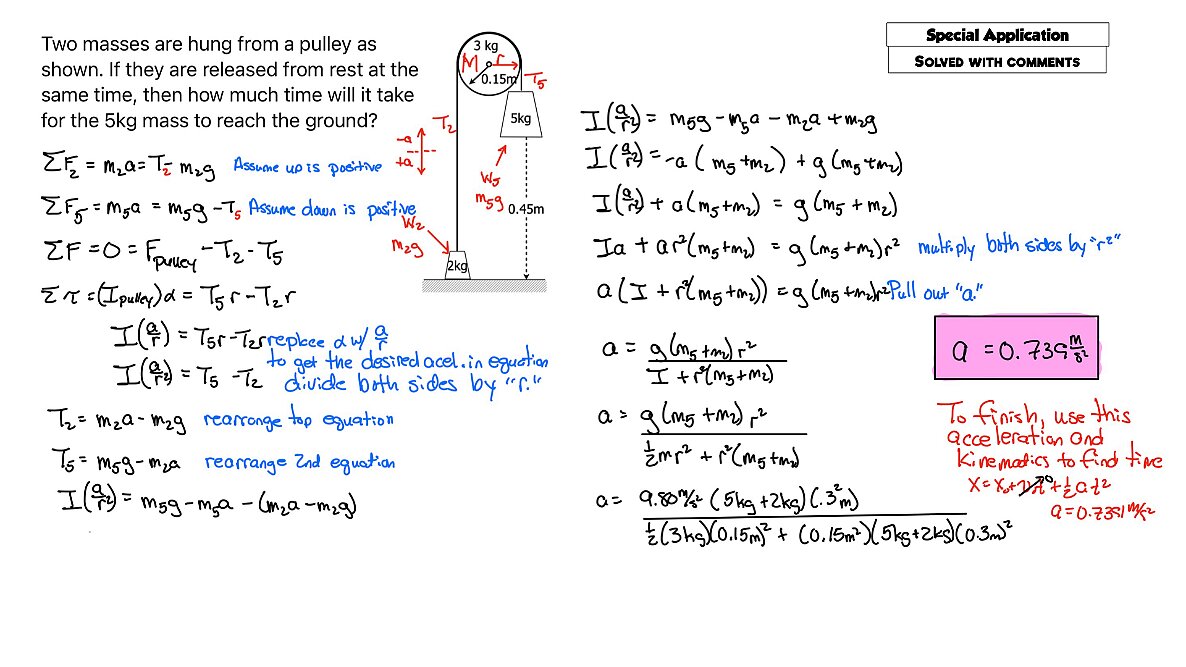 Two masses are hung from a pulley as
shown. If they are released from rest at the
same time, then how much time will it take
for the 5kg mass to reach the ground?
3 kg
M r
0.15m
T₅
5kg
T₂
-a
+a
W₅
m₅g
0.45m
W₂
m₂g
2kg
ΣF₂ = m₂a = T₂ - m₂g Assume up is positive
ΣF₅ = m₅a = m₅g - T₅ Assume down is positive
ΣF = 0 = F_pulley - T₂ - T₅
Στ = (I_pulley)α = T₅r - T₂r
I(a/r) = T₅r - T₂r replace α w/ a/r
to get the desired acel. in equation
I(a/r²) = T₅ - T₂ divide both sides by "r."
T₂ = m₂a - m₂g rearrange top equation
T₅ = m₅g - m₂a rearrange 2nd equation
I(a/r²) = m₅g - m₅a - (m₂a - m₂g)
Special Application
SOLVED WITH COMMENTS
I(a/r²) = m₅g - m₅a - m₂a + m₂g
I(a/r²) = -a(m₅ + m₂) + g(m₅ + m₂)
I(a/r²) + a(m₅ + m₂) = g(m₅ + m₂)
Ia + ar²(m₅ + m₂) = g(m₅ + m₂)r² multiply both sides by "r²"
a(I + r²(m₅ + m₂)) = g(m₅ + m₂)r² Pull out "a."
a = g(m₅ + m₂)r² / I + r²(m₅ + m₂)
a = g(m₅ + m₂)r² / ½mr² + r²(m₅ + m₂)
a = 9.80 m/s² (5kg + 2kg)(.3²m) / ½(3kg)(0.15m)² + (0.15m²)(5kg + 2kg)(0.3m)²
a = 0.739 m/s²
To finish, use this
acceleration and
kinematics to find time
x = x₀ + v₀t⁰ + ½at²
a = 0.7391 m/s²